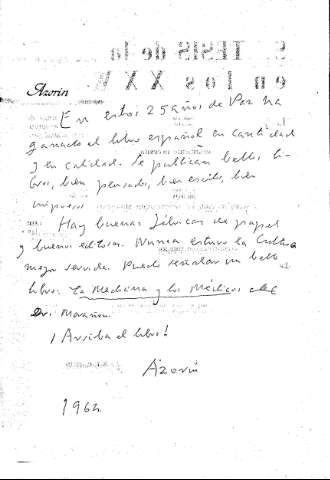 Azorín
En estos 25 años de Paz ha
ganado el libro español en cantidad
y en calidad. Se publican bellos li-
bros, bien pensados, bien escritos, bien
impresos.
Hay buenas fábricas de papel
y buenos editores. Nunca estuvo la Cultura
mejor servida. Puedo señalar un bello
libro: La Medicina y los Médicos del
Dr. Marañón.
¡Arriba el libro!
Azorín
1964